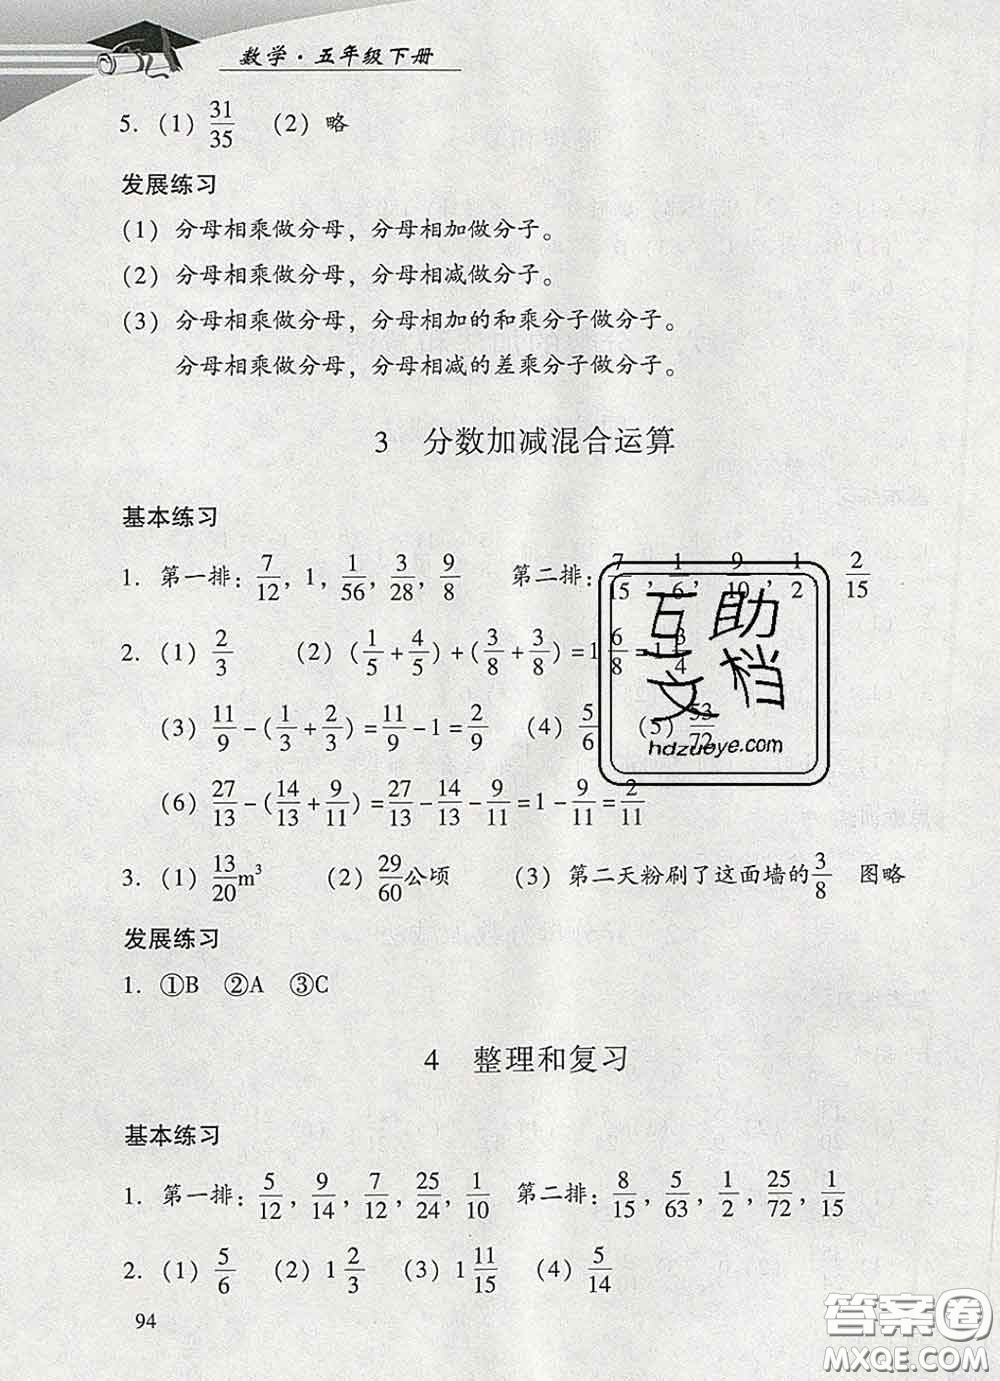 数学·五年级下册
5. (1) 31/35 (2) 略
发展练习
(1) 分母相乘做分母，分母相加做分子。
(2) 分母相乘做分母，分母相减做分子。
(3) 分母相乘做分母，分母相加的和乘分子做分子。
分母相乘做分母，分母相减的差乘分子做分子。
3 分数加减混合运算
基本练习
1. 第一排：7/12，1，1/56，3/28，9/8 第二排：7/15，1/6，9/10，1/2 2/15
2. (1) 2/3 (2) (1/5+4/5)+(3/8+3/8)=1 6/8=1 3/4
(3) 11/9-(1/3+2/3)=11/9-1=2/9 (4) 5/6 (5) 53/72
(6) 27/13-(14/13+9/11)=27/13-14/13-9/11=1-9/11=2/11
3. (1) 13/20 m³ (2) 29/60公顷 (3) 第二天粉刷了这面墙的3/8 图略
发展练习
1. ①B ②A ③C
4 整理和复习
基本练习
1. 第一排：5/12，9/14，7/12，25/24，1/10 第二排：8/15，5/63，1/2，25/72，1/15
2. (1) 5/6 (2) 1 2/3 (3) 1 11/15 (4) 5/14
94
互助
文档
hdzuoye.com
答案圈
MXQE.COM